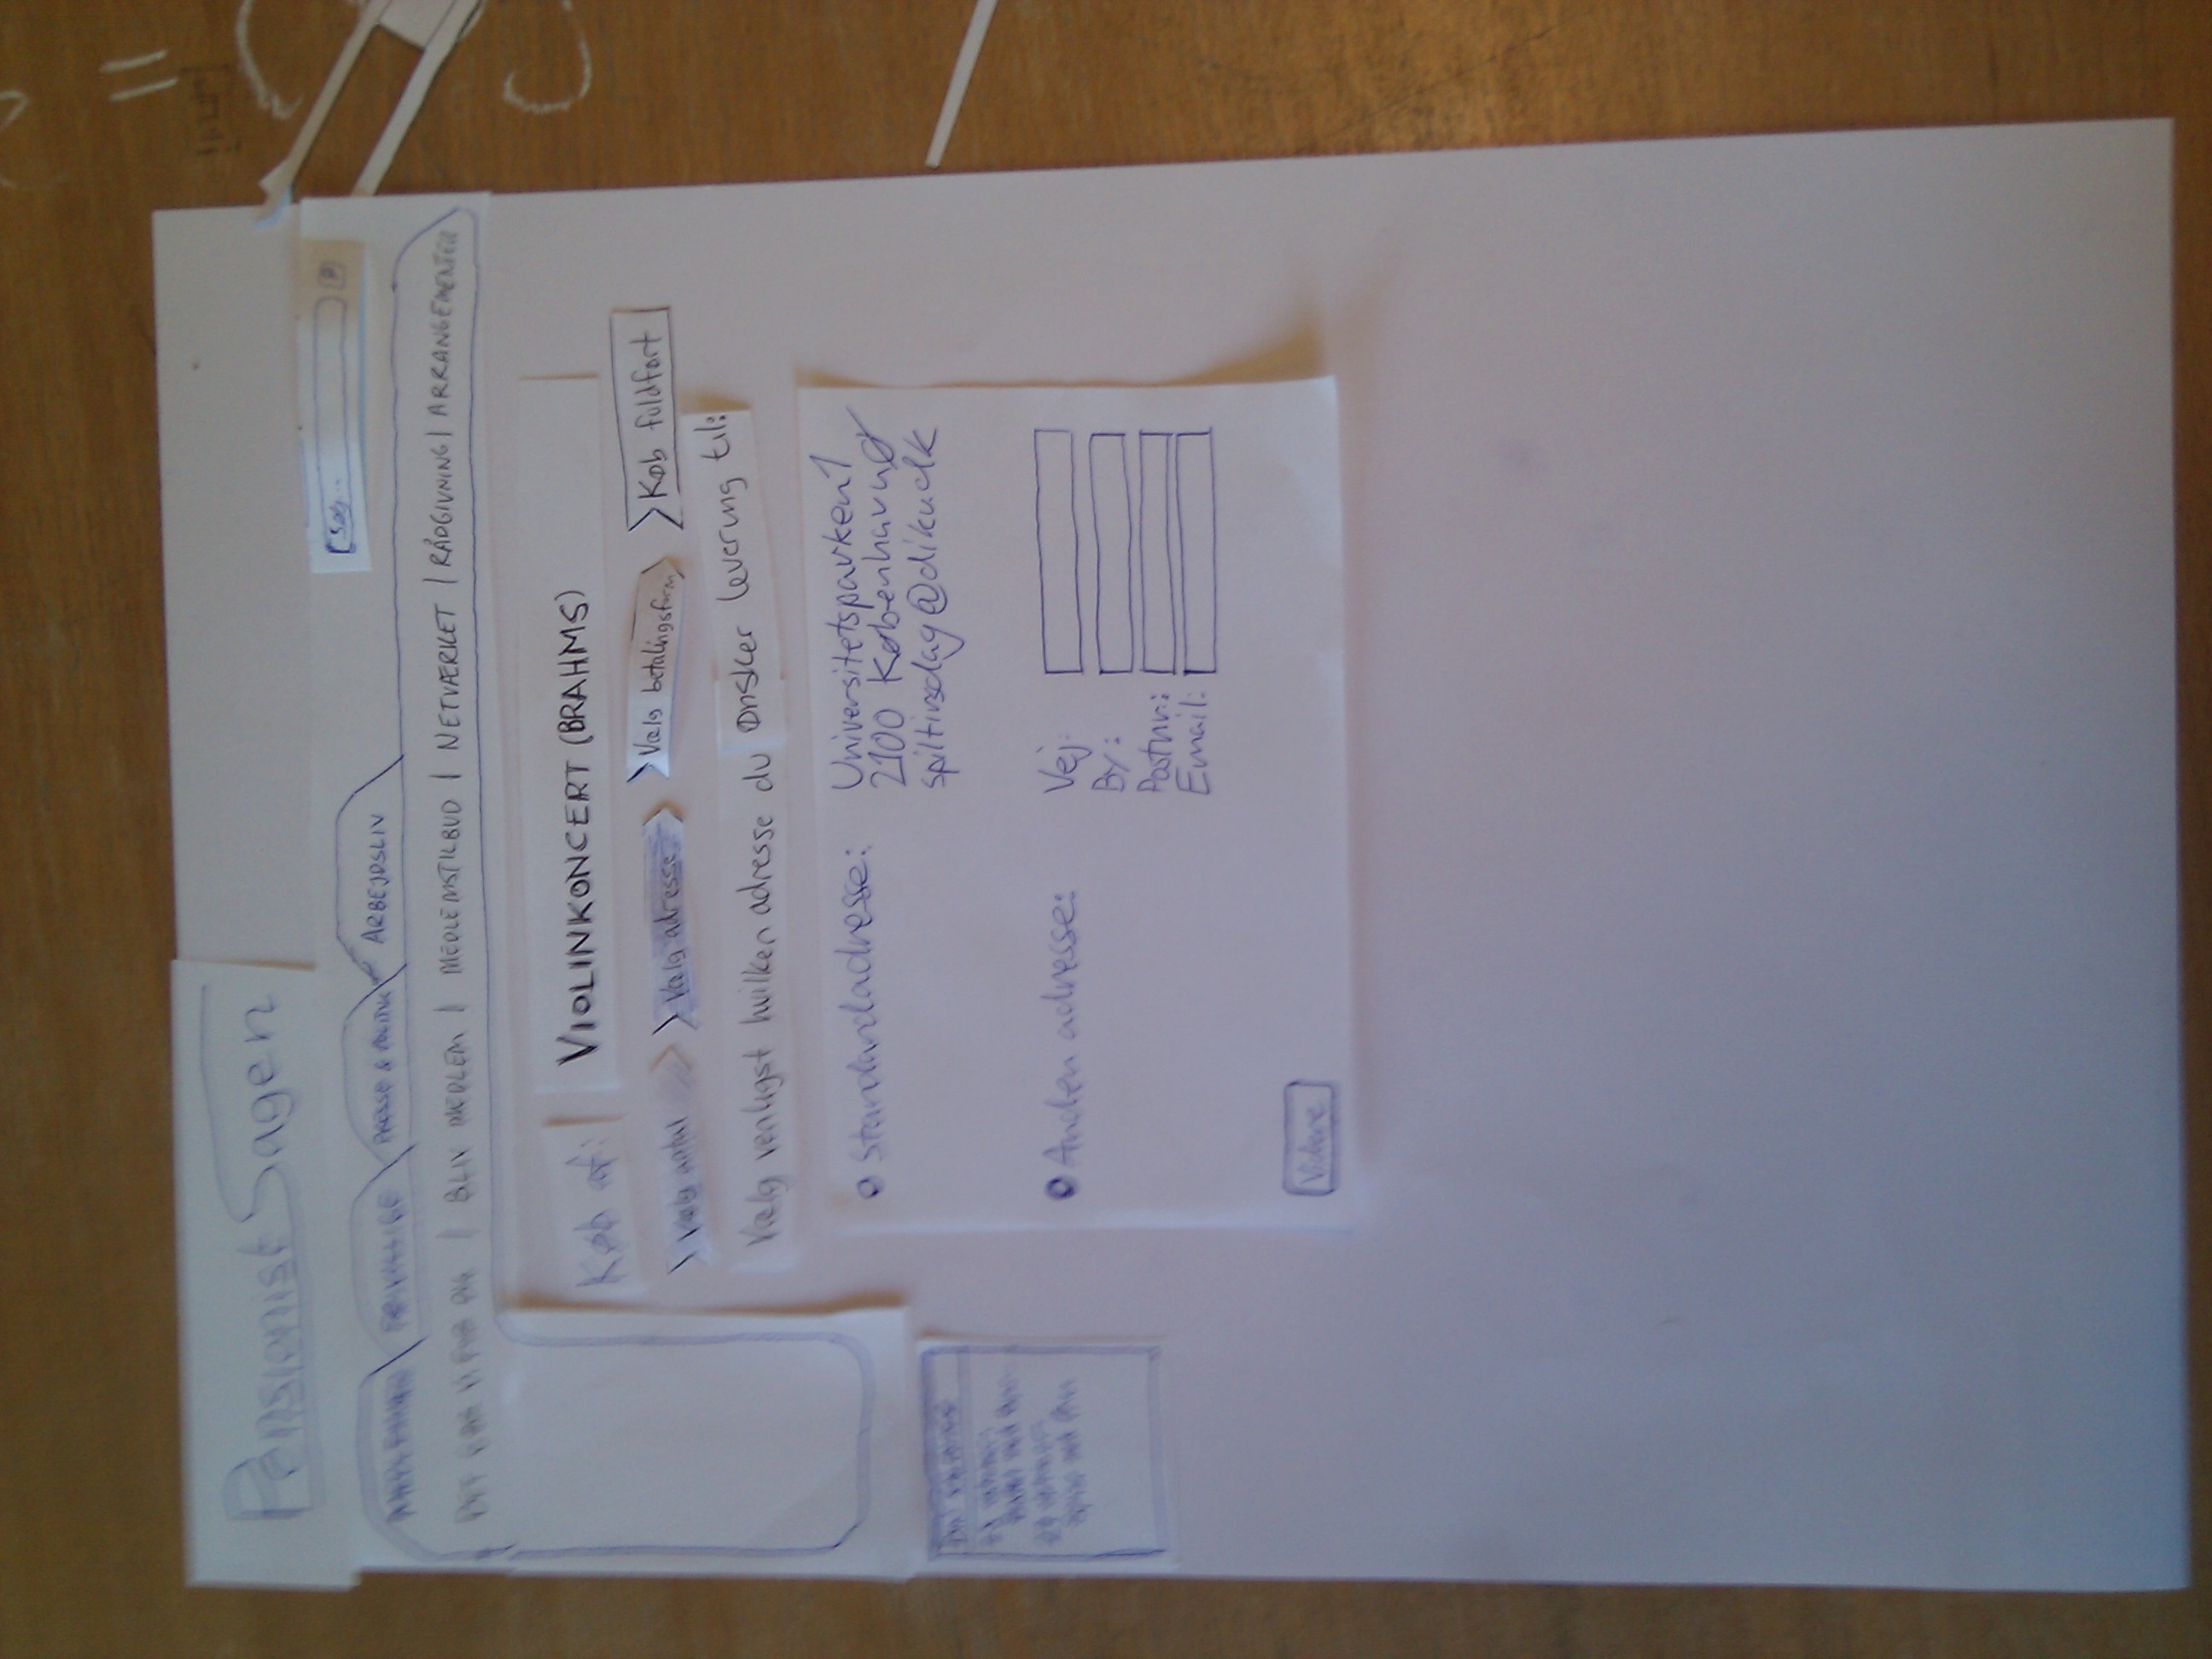 PensionistSagen
Søg...
FRIVILLIGE
PRESSE & POLITIK
ARBEJDSLIV
BLIV MEDLEM | MEDLEMSTILBUD | NETVÆRKET | RÅDGIVNING | ARRANGEMENTER
Køb af: VIOLINKONCERT (BRAHMS)
Vælg antal
Vælg adresse
Vælg betalingsform
Køb fuldført
Vælg venligst hvilken adresse du ønsker levering til:
Standardadresse: Universitetsparken 1
2100 København Ø
spiltirsdag@diku.dk
Anden adresse: Vej:
By:
Postnr:
Email:
Videre